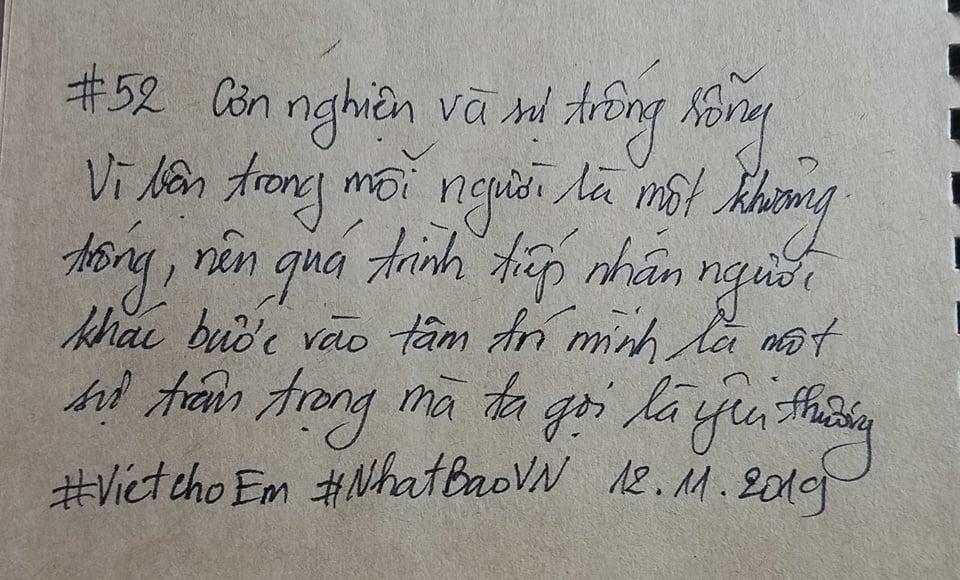 #52 Cơn nghiện và sự trống rỗng
Vì bên trong mỗi người là một khoảng
trống, nên quá trình tiếp nhận người
khác bước vào tâm trí mình là một
sự trân trọng mà ta gọi là yêu thương
#VietchoEm #NhatBaoVN 12.11.2019